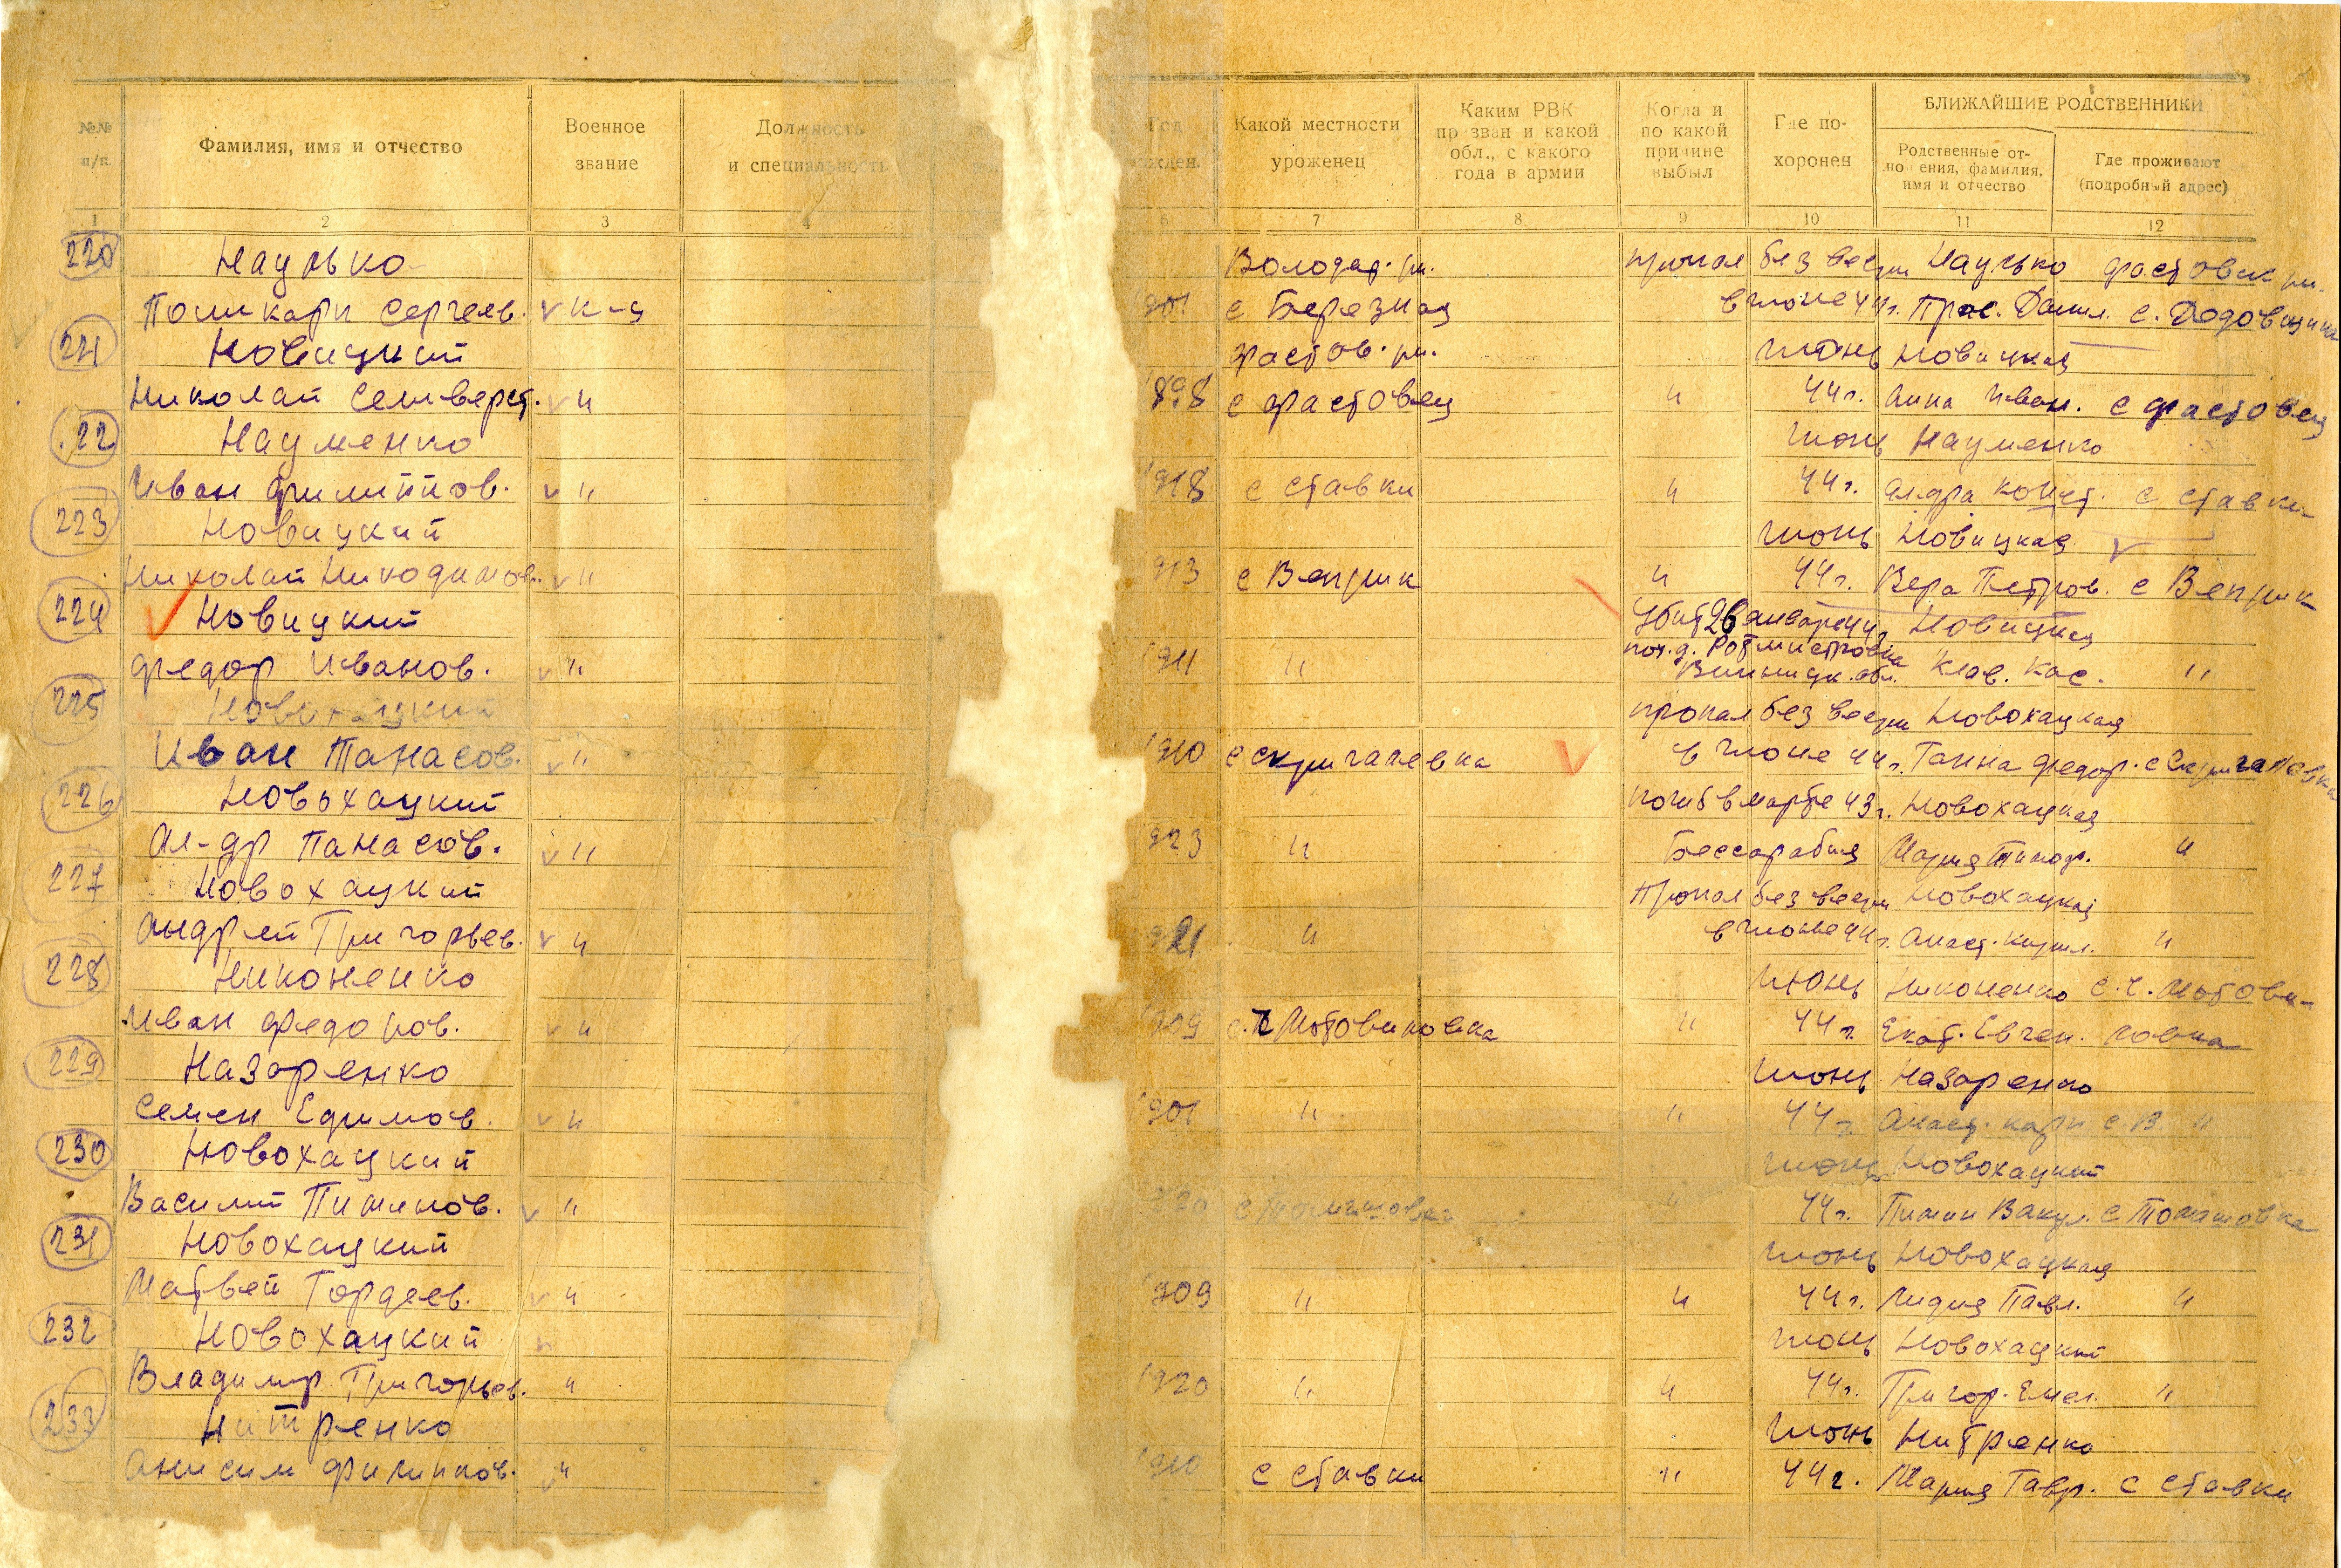 №№ п/п.
Фамилия, имя и отчество
Военное звание
Должность и специальность
Год рожден.
Какой местности уроженец
Каким РВК призван и какой обл., с какого года в армии
Когда и по какой причине выбыл
Где похоронен
БЛИЖАЙШИЕ РОДСТВЕННИКИ
Родственные отношения, фамилия, имя и отчество
Где проживают (подробный адрес)
1 2 3 4 6 7 8 9 10 11 12
220 Володар. рн. пропал без вести фастовск рн.
Поликарп Сергеев. к-ц 1901 с Березна в июне 44г. Прас. Данил. с. Дедовщина
221 Новицкий фастов. рн. июнь Новицкая
Николай Селиверст. " 1898 с фастовец " 44г. Анна Иван. с фастовец
222 Науменко июнь Науменко
Иван Филиппов. " 1918 с ставки " 44г. Ал-дра Конст. с ставки
223 Новицкий июнь Новицкая
Николай Никодимов. " 913 с Веприк " 44г. Вера Петров. с Веприк
224 Новицкий Убит 26 января 44г. Новицкая
пох. д. Ротмистровка
Федор Иванов. " 1911 " Винницк. обл. Клав. Кас. "
225 Новохацкий пропал без вести Новохацкая
Иван Танасов. " 1910 с скригалевка в июне 44г. Ганна Федор. с Скригалевка
226 Новохацкий погиб в марте 43г. Новохацкая
Ал-др Панасов. " 923 " Бессарабия Мария Тимоф. "
227 Новохацкий Пропал без вести Новохацкая
Андрей Григорьев. " 1921 " в июне 44г. Анаст. Кирил. "
228 Никоненко июнь Никоненко с. Мотови-
Иван Федоров. " 1909 Мотовиловка " 44г. Екат. Евген. ловка
229 Назаренко июнь Назаренко
Семен Ефимов. " 1901 " " 44г. Анаст. Карп с. В. "
230 Новохацкий июнь Новохацкий
Василий Пименов. " 920 с Томашовка " 44г. Пимен Вакул. с Томашовка
231 Новохацкий июнь Новохацкая
Матвей Гордеев. " 1909 " " 44г. Лидия Павл. "
232 Новохацкий июнь Новохацкий
Владимир Григорьев. " 1920 " " 44г. Григор. Емел. "
233 Нитренко июнь Нитренко
Анисим Филиппов. " 1910 с ставки " 44г. Мария Гавр. с ставки